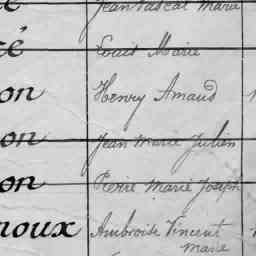 Jean Pascal Marie
é Louis Marie
on Henry Amand
on Jean Marie Julien
on Pierre Marie Joseph
noux Ambroise Vincent
Marie